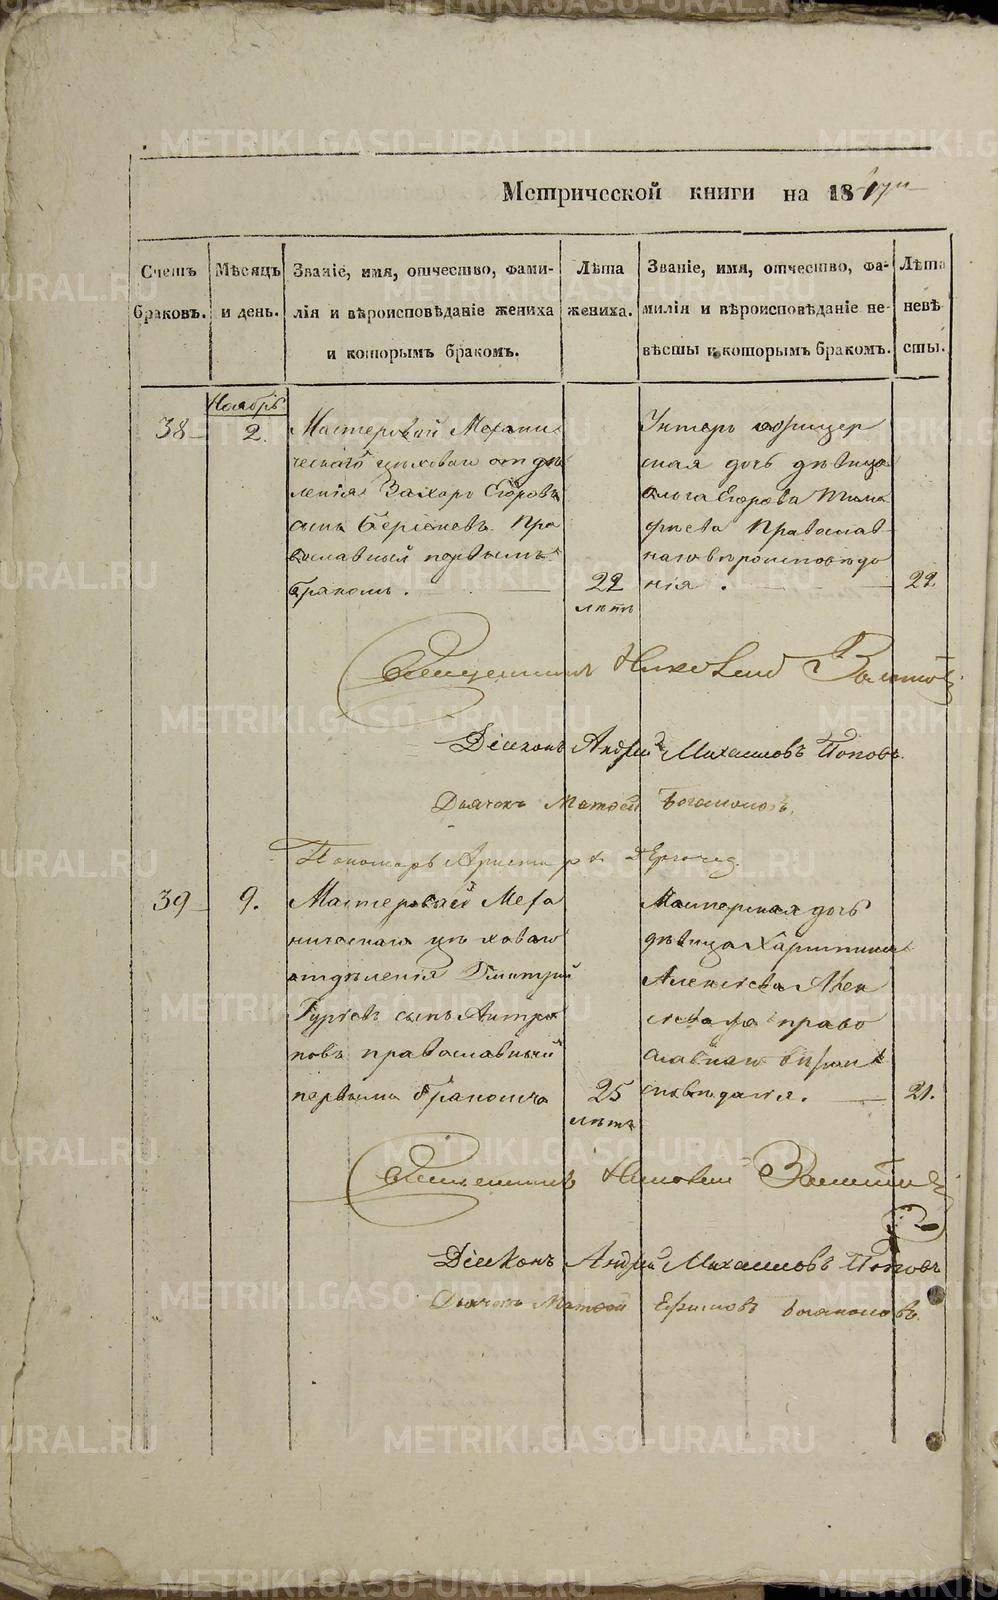 METRIKI.GASO-URAL.RU
Метрической книги на 18
Счетъ браковъ.
Мѣсяцъ и день.
Званіе, имя, отчество, фами-
лія и вѣроисповѣданіе жениха
и которымъ бракомъ.
Лѣта
жениха.
Званіе, имя, отчество, фа-
милія и вѣроисповѣданіе не-
вѣсты и которымъ бракомъ.
Лѣта
невѣ
сты.
Ноябрь
38
2.
Мастеровой Механи
ческаго цеховаго отдѣ
ленія Захаръ Егоровъ
сынъ Пра
вославный первымъ
бракомъ.
22
лѣтъ
Унтеръ офицер
ская дочь дѣвица
Ольга Егорова
Православ
наго вѣроисповѣда
нія.
22
Священникъ Николай
Діаконъ Андрей Михаиловъ Поповъ.
Дьячокъ Матѳей
Пономарь
39
9.
Мастеровой Меха
ническаго цеховаго
отдѣленія Дмитрій
Гурьевъ сынъ Антро
повъ православный
первымъ бракомъ
25
лѣтъ
Мастерская дочь
дѣвица Харитина
Алексѣева
право
славнаго вѣрои
сповѣданія.
21.
Священникъ Николай
Діаконъ Андрей Михаиловъ Поповъ
Дьячокъ Матѳей Ефимовъ